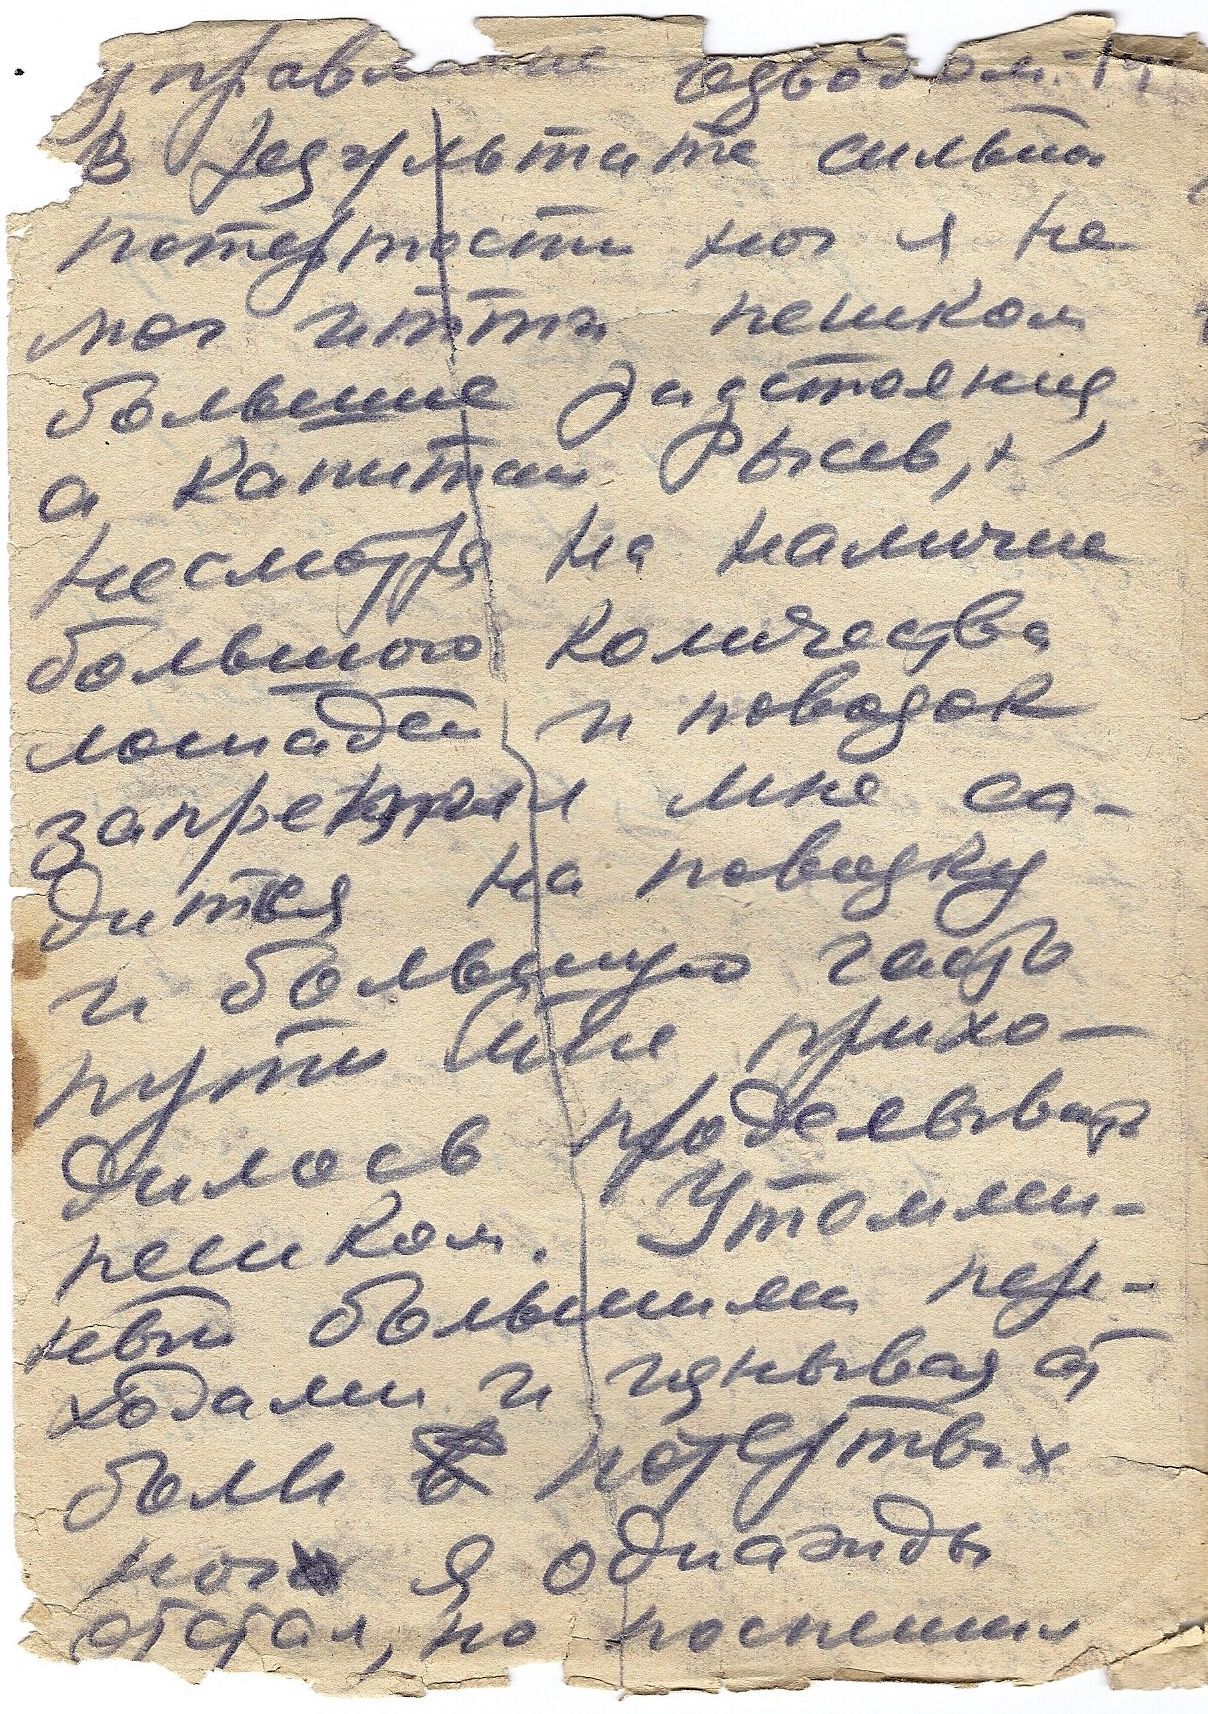 управление взводом. 
В результате сильной
потертости ног я не
мог итти пешком
большие расстояния
а капитан Рысев,
несмотря на наличие
большого количества
лошадей и повозок
запретил мне са-
диться на повозку
и большую часть
пути мне прихо-
дилось проделывать
пешком. Утомлен-
ный большими пере-
ходами и изнывая от
боли потертых
ног я однажды
отстал, но поспешил